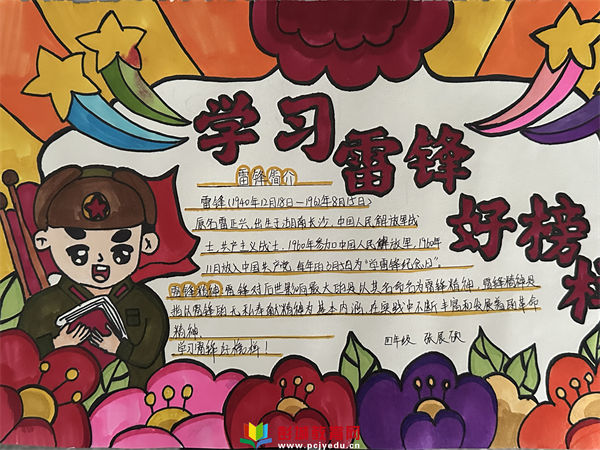 学习雷锋
好榜样
雷锋简介
雷锋(1940年12月18日—1962年8月15日)
原名雷正兴,出生于湖南长沙,中国人民解放军战
士,共产主义战士,1960年参加中国人民解放军,1960年
11月加入中国共产党,每年的3月5日为"学雷锋纪念日"。
雷锋精神 雷锋对后世影响最大的是以其名命名的雷锋精神,雷锋精神是
指以雷锋的无私奉献精神为基本内涵,在实践中不断丰富和发展着的革命
精神
学习雷锋好榜样!
四年级 张展硕
www.pcjyedu.cn